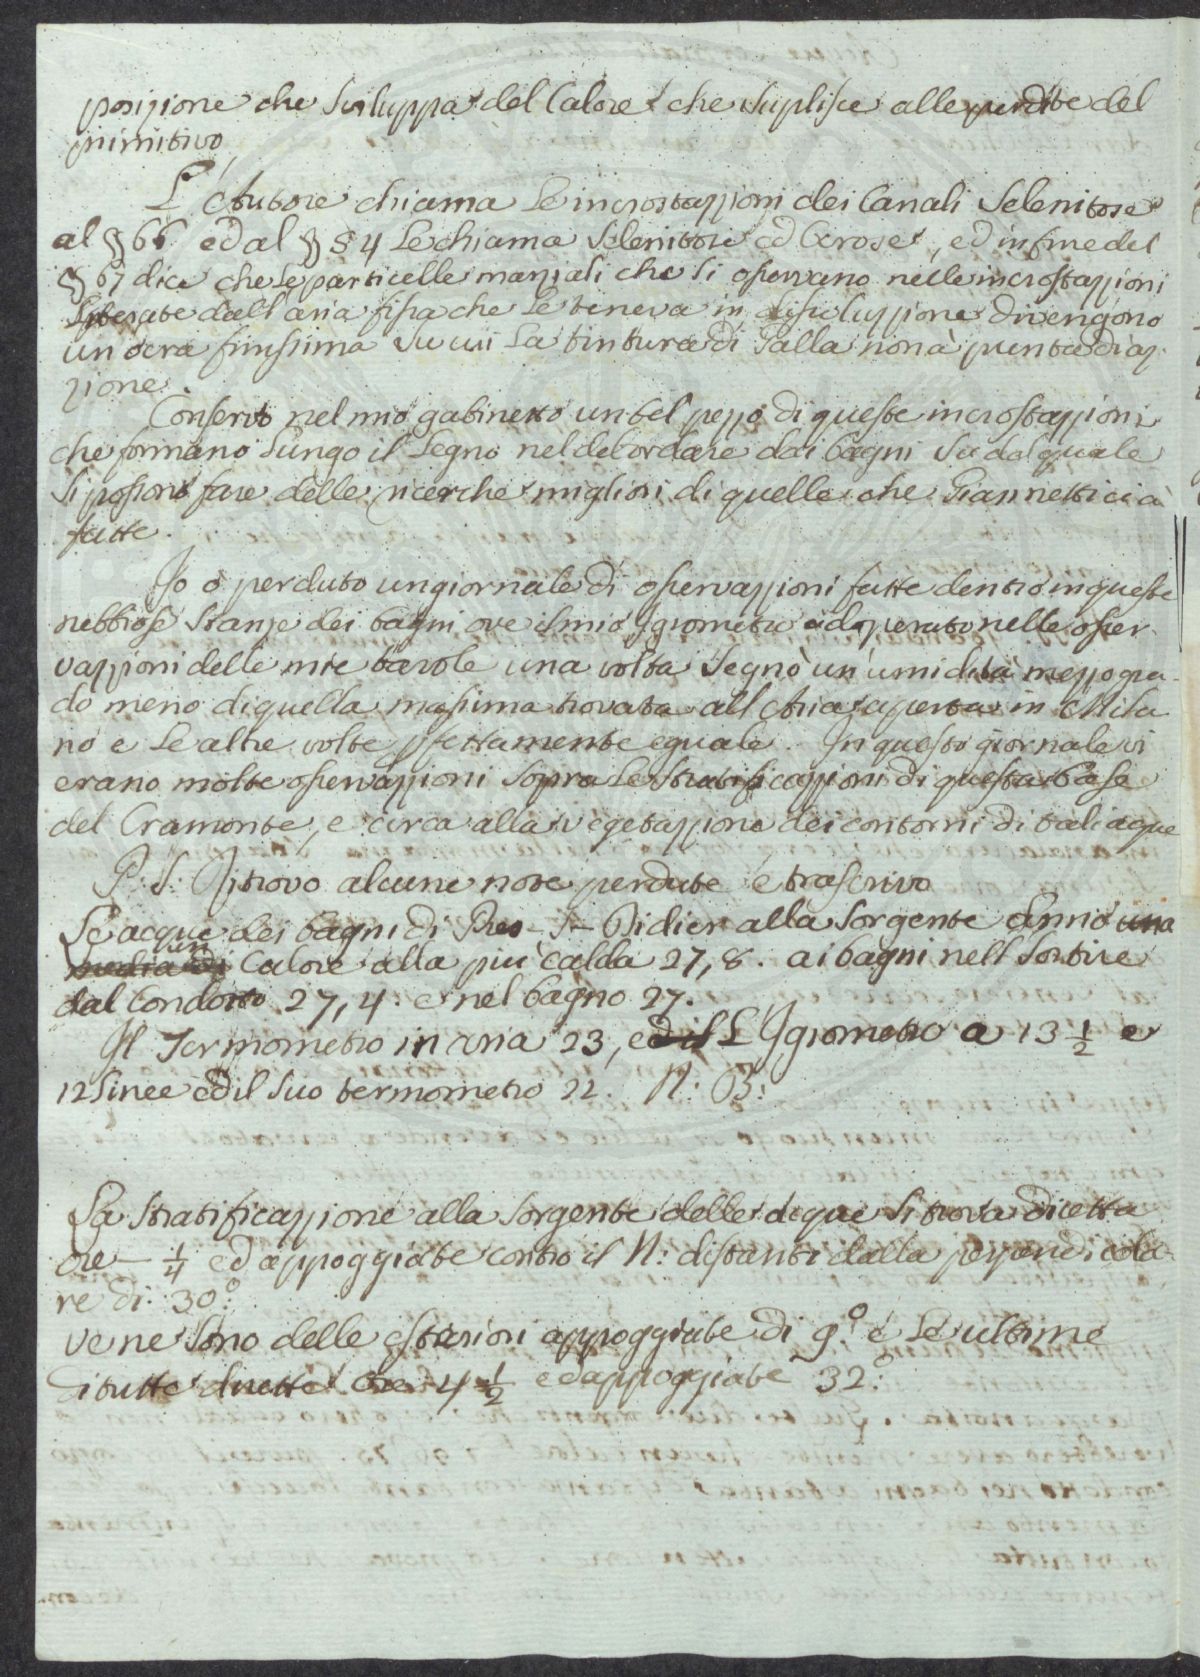 posizione che sviluppa del Calore che suplisce alle perdite del
primitivo
L'Autore chiama Le incrostazzioni dei Canali Selenitose
al § 66 ed al § 84 Le chiama Selenitose ed Ocrose, ed infine del
§ 67 dice che Le particelle marziali che si osservano nelle incrostazzioni
Liberate dall'aria fissa che Le teneva in dissoluzzione divengono
un ocra finissima su cui La tintura di Galla non à punta di az-
zione.
Conservo nel mio gabinetto un bel pezzo di queste incrostazzioni
che formano Lungo il Legno nel debordare dai bagni su dal quale
si possono fare delle ricerche migliori di quelle che Giannetti ci à
fatte.
Io o perduto un giornale di osservazzioni fatte dentro in queste
nebbiose stanze dei bagni ove il mio Igrometro adoperato nelle osser-
vazzioni delle mie tavole una volta segnò un'umidità mezzo gra-
do meno di quella massima trovata all'Aria aperta in Mila
no e Le altre volte pfettamente eguale. In questo giornale vi
erano molte osservazzioni sopra Le stratificazzioni di questa base
del Cramonte, e circa alla vegetazzione dei contorni di tali acque
P: S: Ritrovo alcune note perdute e trascrivo
Le acque dei bagni di Pres-S- Didier alla Sorgente anno una
media di un Calore alla più calda 27,8. ai bagni nell sortire
dal Condotto 27,4. e nel bagno 27.
Il Termometro in aria 23, ed il L'Igrometro a 13 1/2 e
12 Linee ed il suo termometro 22. N: B:
La stratificazzione alla Sorgente delle Acque si trova diretta
ore - 1/4 ed appoggiate contro il N: distanti dalla perpendicola-
re di 30°.
ve ne sono delle esteriori appoggiate di 9.° e Le ultime
di tutte dirette Ore 4 1/2 ed appoggiate 32.°